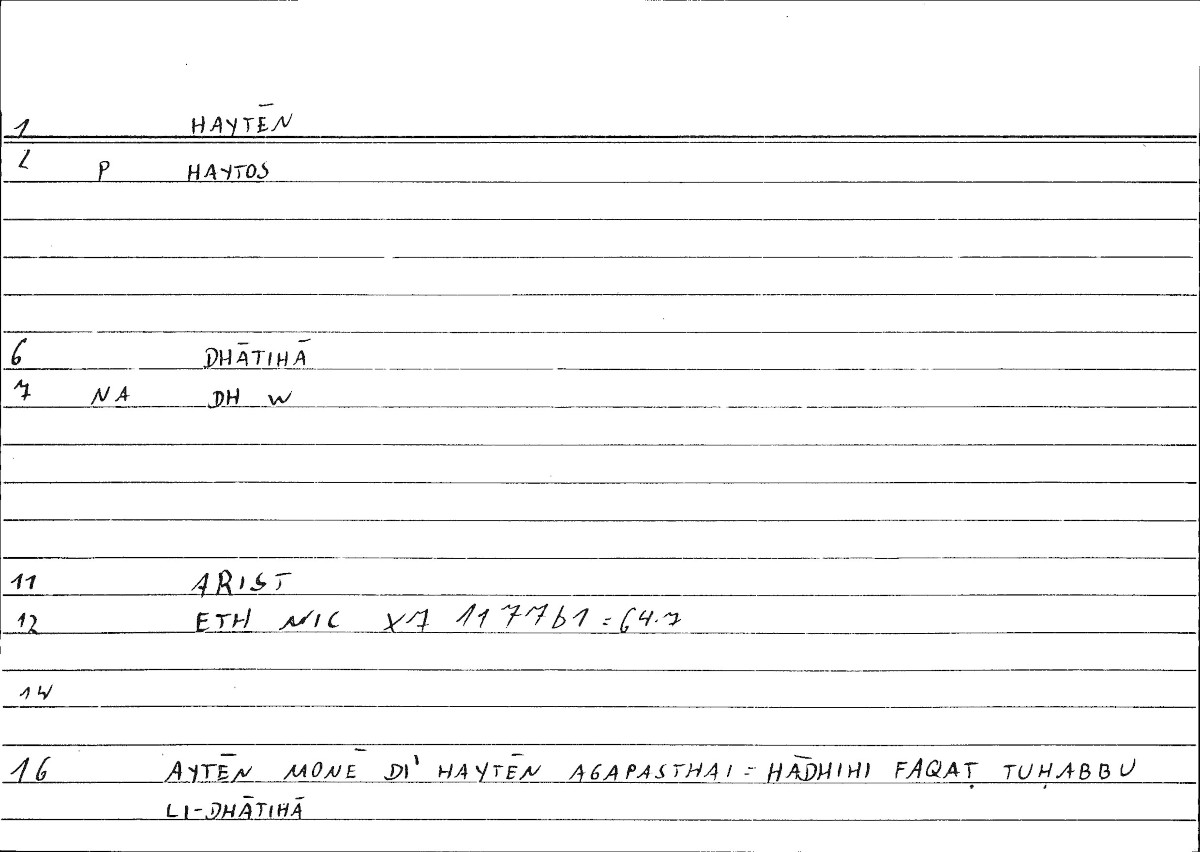 1 HAYTĒN
2 P HAYTOS
6 DHĀTIHĀ
7 NA DH W
11 ARIST
12 ETH NIC X7 1177b1 = 64.7
14
16 AYTĒN MONĒ DI' HAYTĒN AGAPASTHAI = HĀDHIHI FAQAṬ TUḤABBU
LI-DHĀTIHĀ